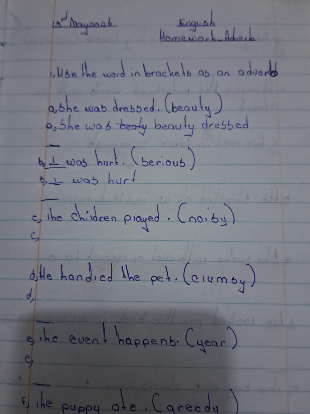 English
Homework_Adverb
1. Use the word in brackets as an adverb
a, She was dressed. (beauty)
a, She was beauty dressed
b, I was hurt. (Serious)
b, I was hurt
c, The children played. (noisy)
c,
d, He handled the pet. (clumsy)
d,
e, The event happens. (year)
e,
f, The puppy ate. (greedy)